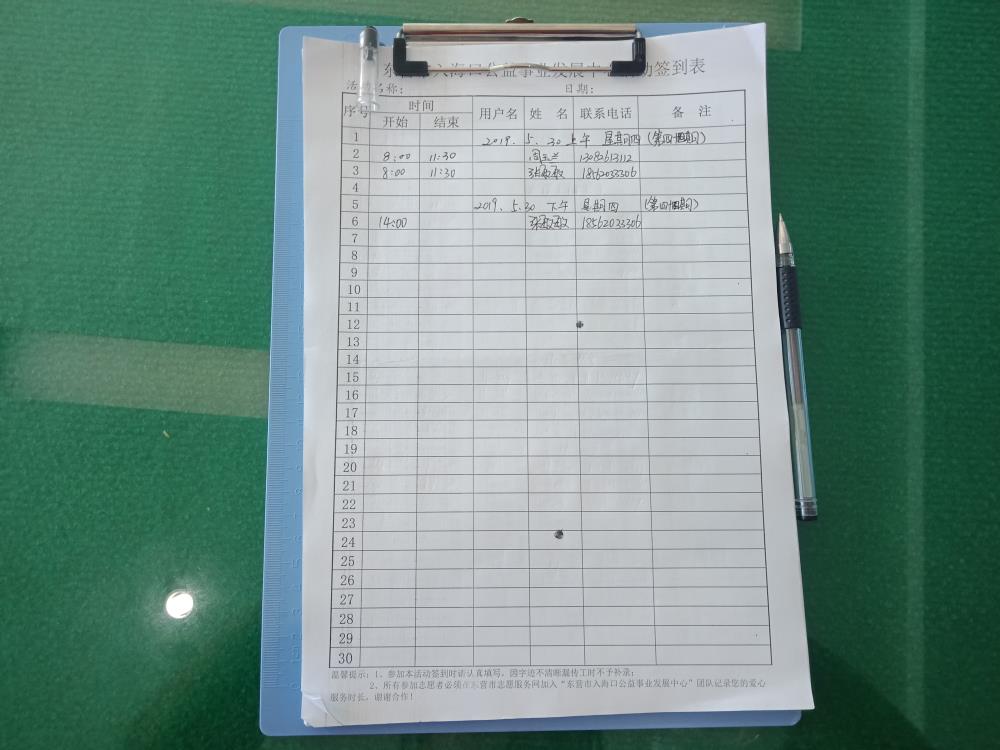 东营市入海口公益事业发展中心活动签到表
活动名称： 日期：
序号 时间 用户名 姓 名 联系电话 备 注
开始 结束
1 2019. 5. 30 上午 星期四 (第四十四期)
2 8:00 11:30 周玉兰 13082613112
3 8:00 11:30 张敏敏 18562033306
4
5 2019. 5.30 下午 星期四 (第四十四期)
6 14:00 张敏敏 18562033306
7
8
9
10
11
12
13
14
15
16
17
18
19
20
21
22
23
24
25
26
27
28
29
30
温馨提示：1、参加本活动签到时请认真填写，因字迹不清晰漏传工时不予补录；
2、所有参加志愿者必须在东营市志愿服务网加入“东营市入海口公益事业发展中心”团队记录您的爱心
服务时长，谢谢合作！